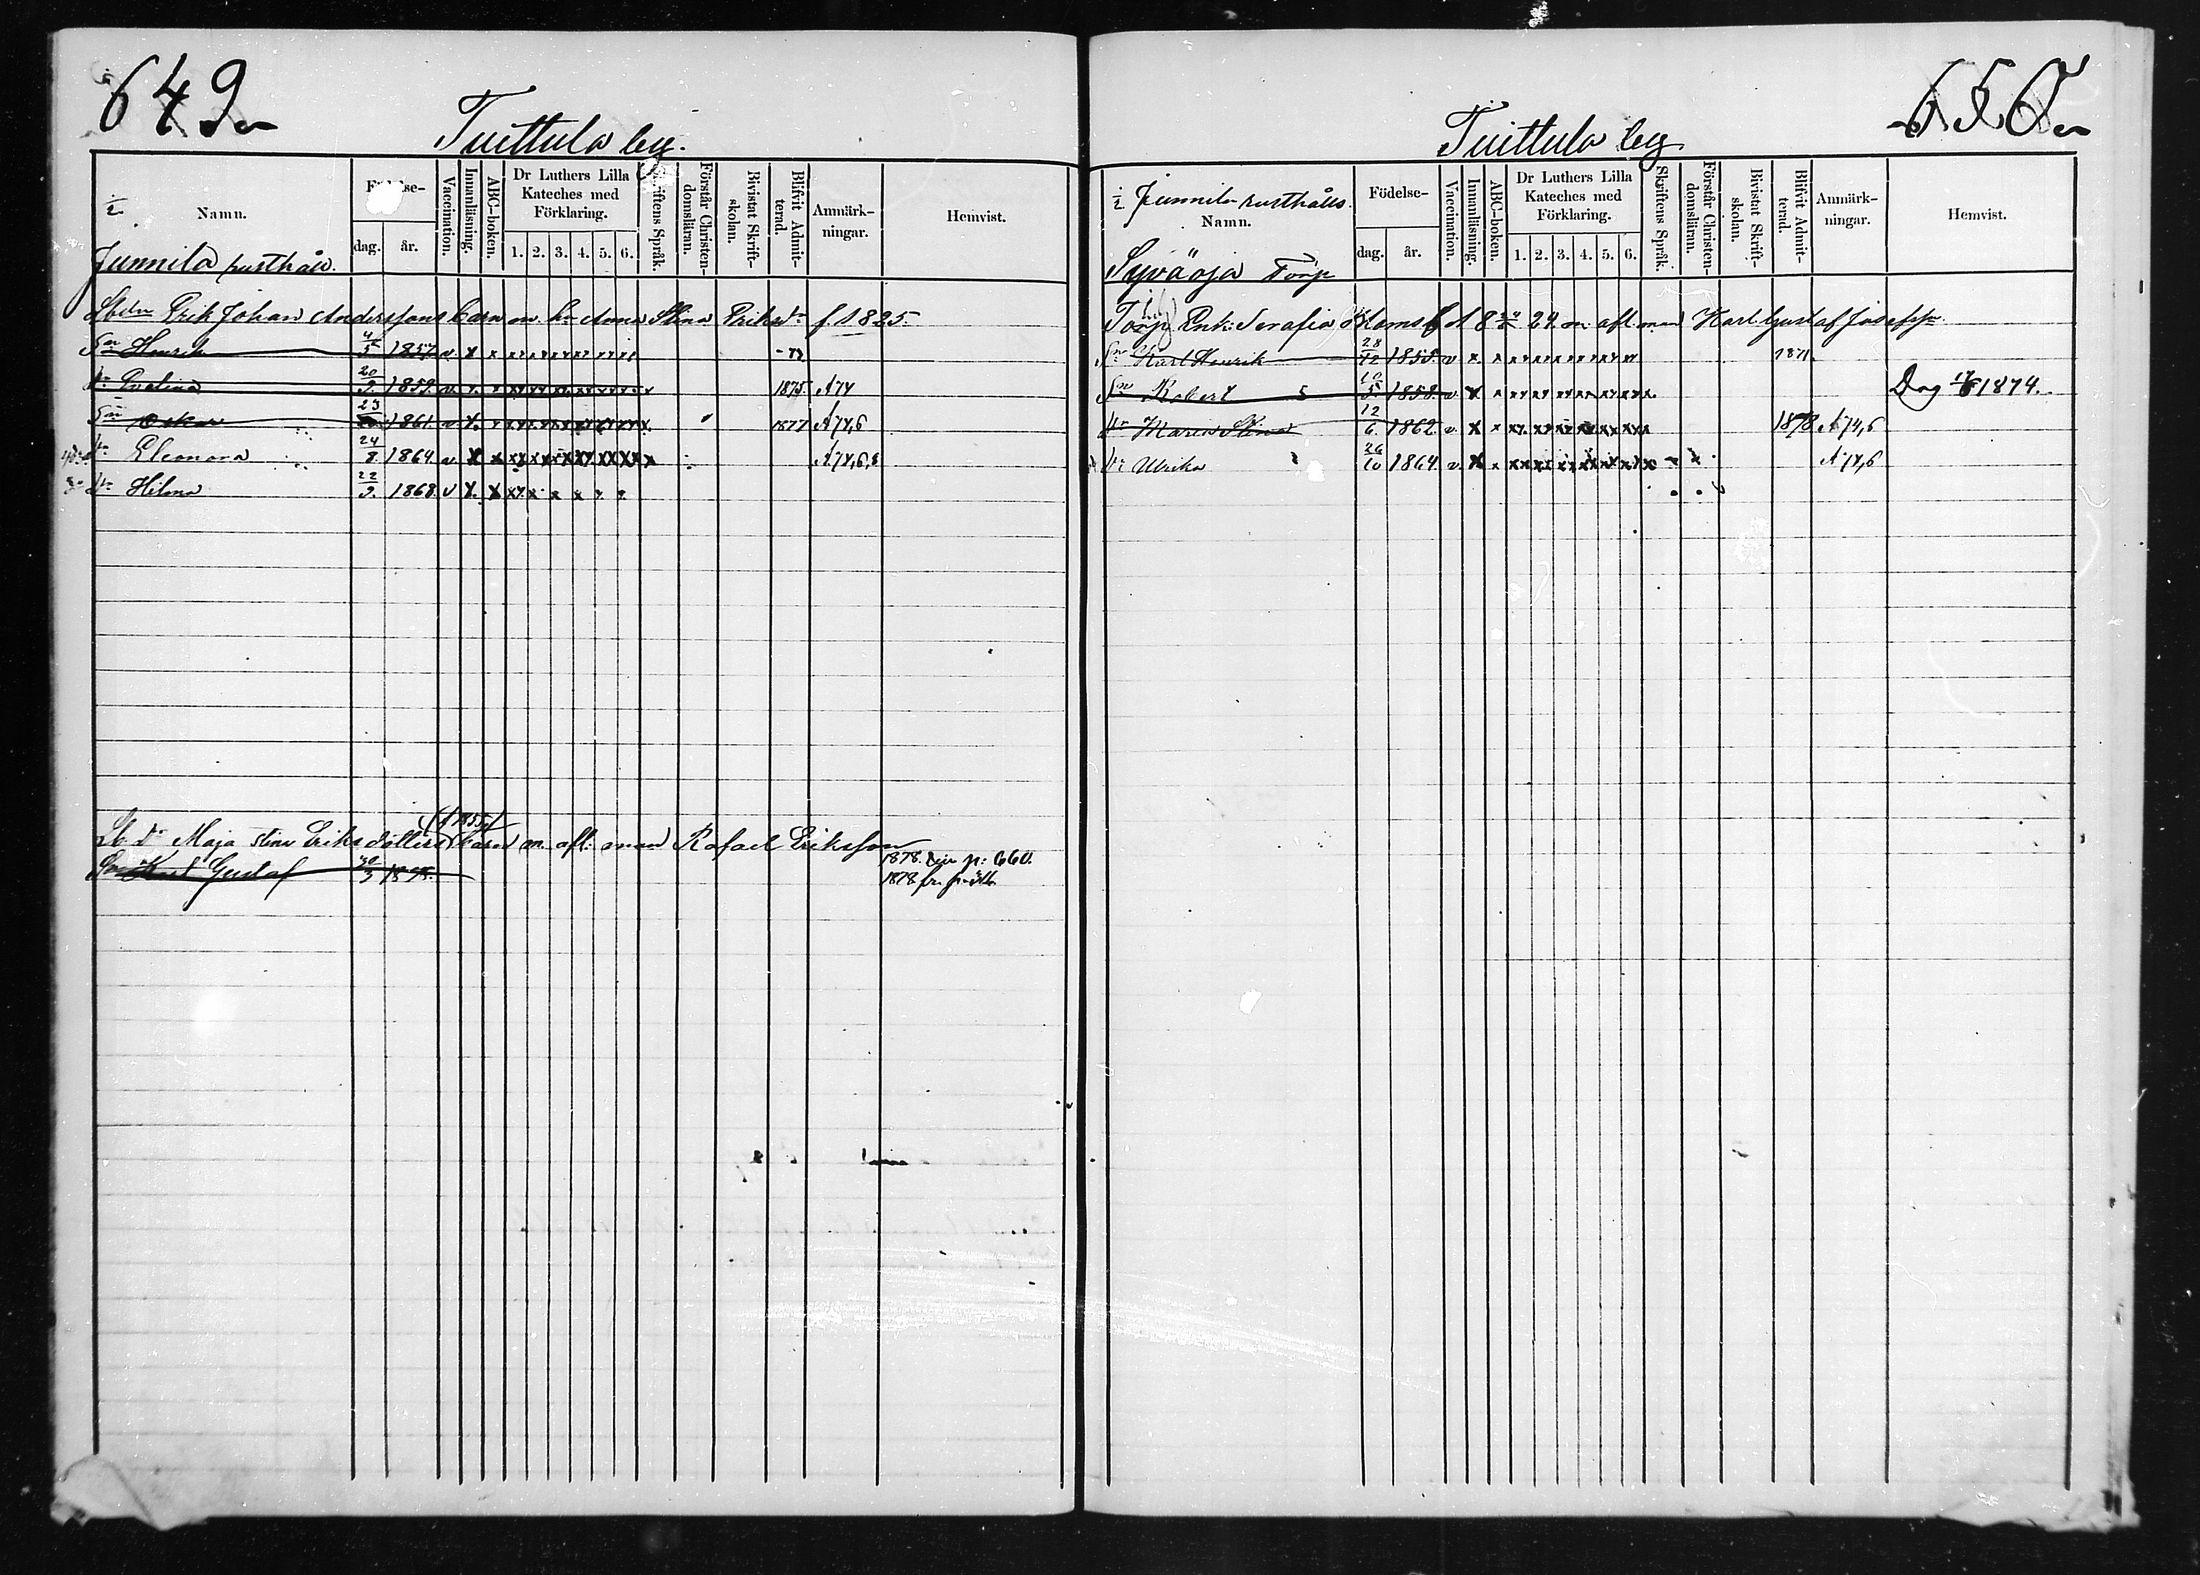 649
Tuittula by.
1/2 Namn. Födelse- dag. år. Vaccination. Innanläsning. ABC-boken. Dr Luthers Lilla Kateches med Förklaring. 1. 2. 3. 4. 5. 6. Skriftens Språk. Förstår Christendomsläran. Bivistat Skriftskolan. Blifvit Admitterad. Anmärkningar. Hemvist.
Junnila rusthåll.
Erik Johan Anderssons barn m. h. Anna Stina Eriksdr f. 1825.
Sn Henrik 4/5 1857 v x x
Dr Evelina 20/9 1859 v x x 1875 A74
Sn Oskar 23 1861 v x x 1877 A74,6
Dr Eleonora 24/8 1864 v x x A74,6,8
Dr Hilma 22/9 1868 v x x
(f 1855)
Maja Stina Eriksdotters barn m. afl. man Rafael Eriksson
Sn Karl Gustaf 30/3 1878 p: 660.
1878 fr.
650
Tuittula by
1/2 Junnila rusthålls. Namn. Födelse- dag. år. Vaccination. Innanläsning. ABC-boken. Dr Luthers Lilla Kateches med Förklaring. 1. 2. 3. 4. 5. 6. Skriftens Språk. Förstår Christendomsläran. Bivistat Skriftskolan. Blifvit Admitterad. Anmärkningar. Hemvist.
Syväoja Torp
Torp Enk: Serafia 24 m. afl. man Karl Gustaf Josefsson.
Sn Karl Henrik 28/12 1855 v x x 1871
Sn Robert 10/5 1858 v x x Dog 1874.
Dr Maria Stina 12/6 1862 v x x 1878 A74,6
Dr Ulrika 26/10 1864 v x x A74,6